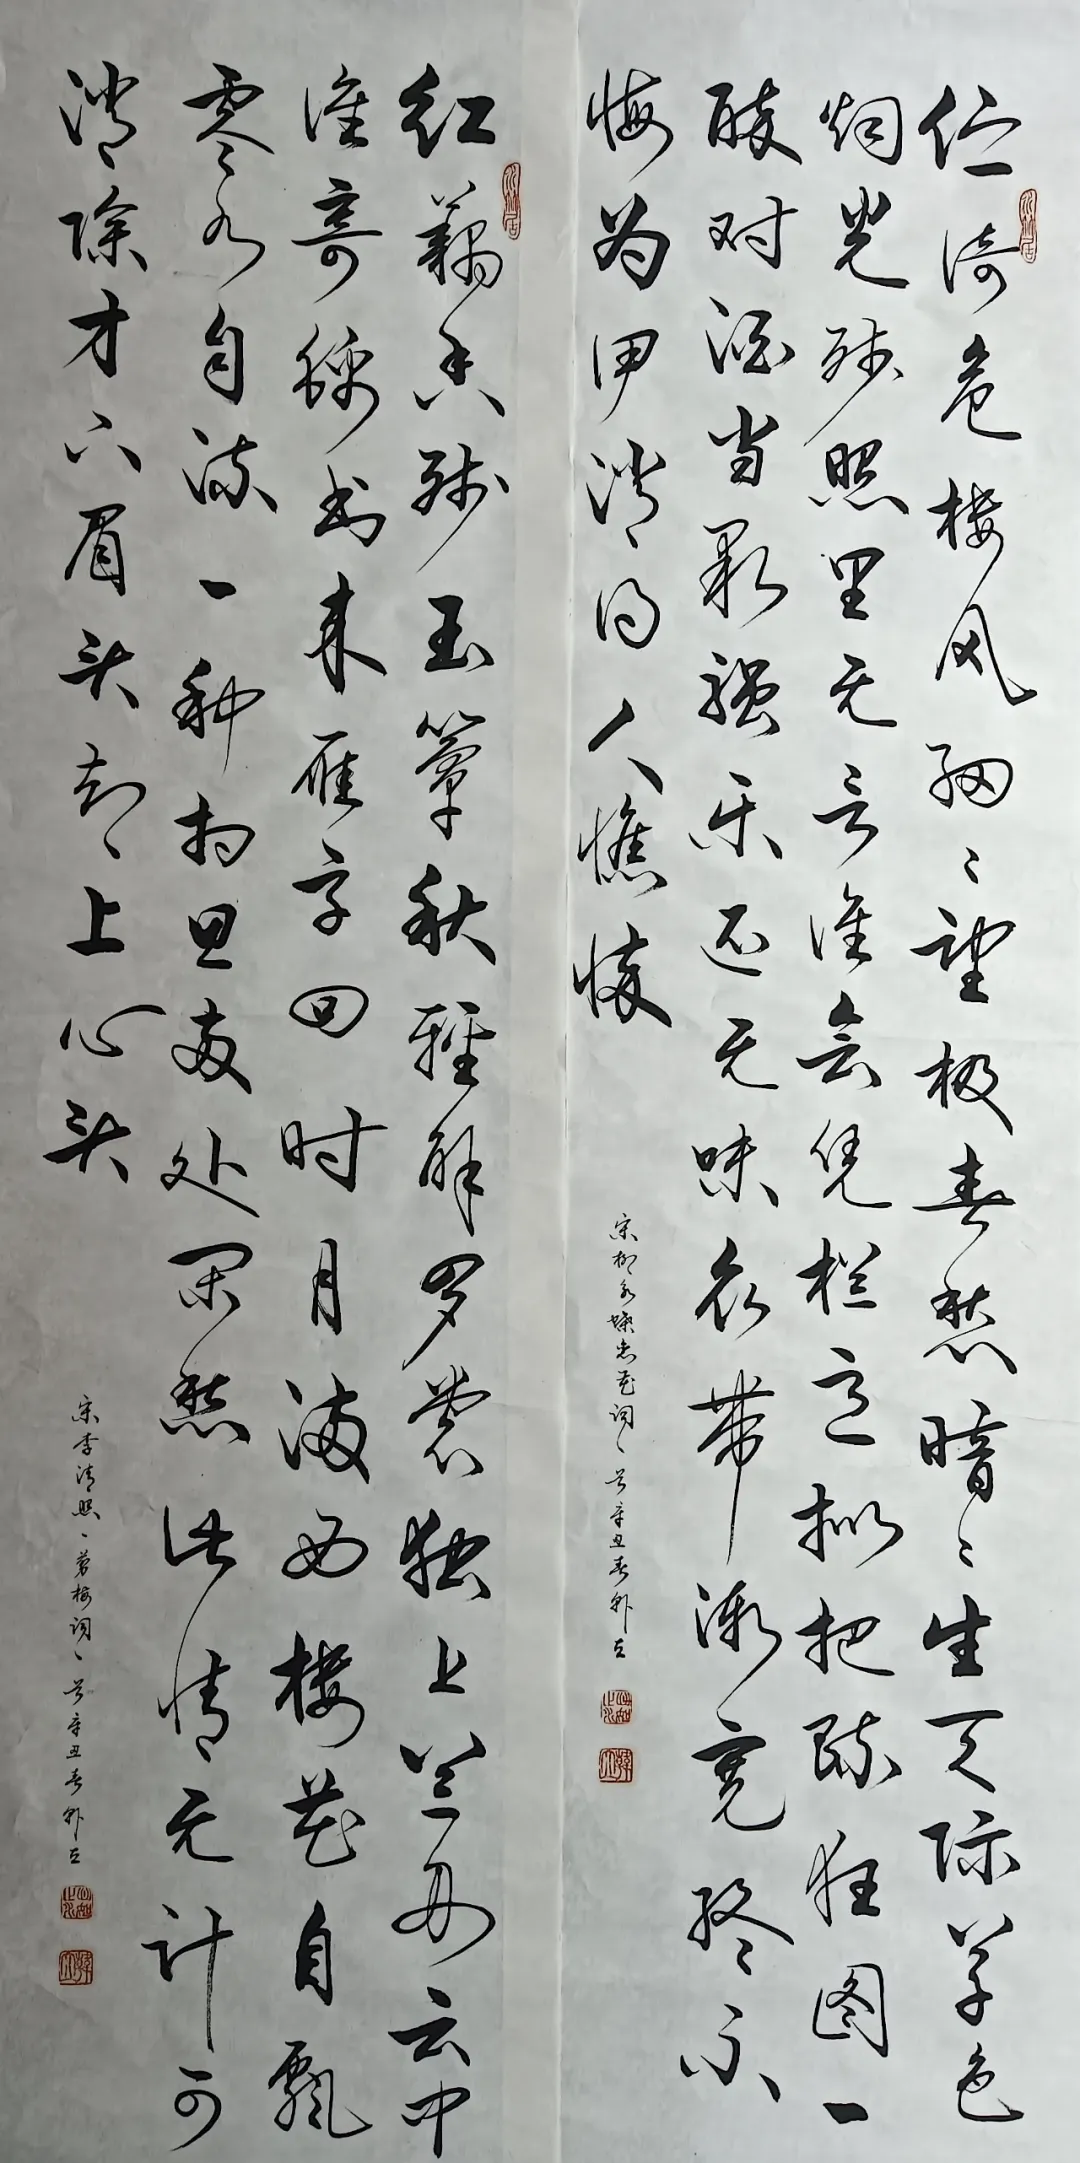 伫倚危楼风细细望极春愁暗暗生天际草色
烟光残照里无言谁会凭栏意拟把疏狂图一
醉对酒当歌强乐还无味衣带渐宽终不
悔为伊消得人憔悴
宋柳永蝶恋花词一首辛丑春韩立
红藕香残玉簟秋轻解罗裳独上兰舟云中
谁寄锦书来雁字回时月满西楼花自飘
零水自流一种相思两处闲愁此情无计可
消除才下眉头却上心头
宋李清照一剪梅词一首辛丑春韩立